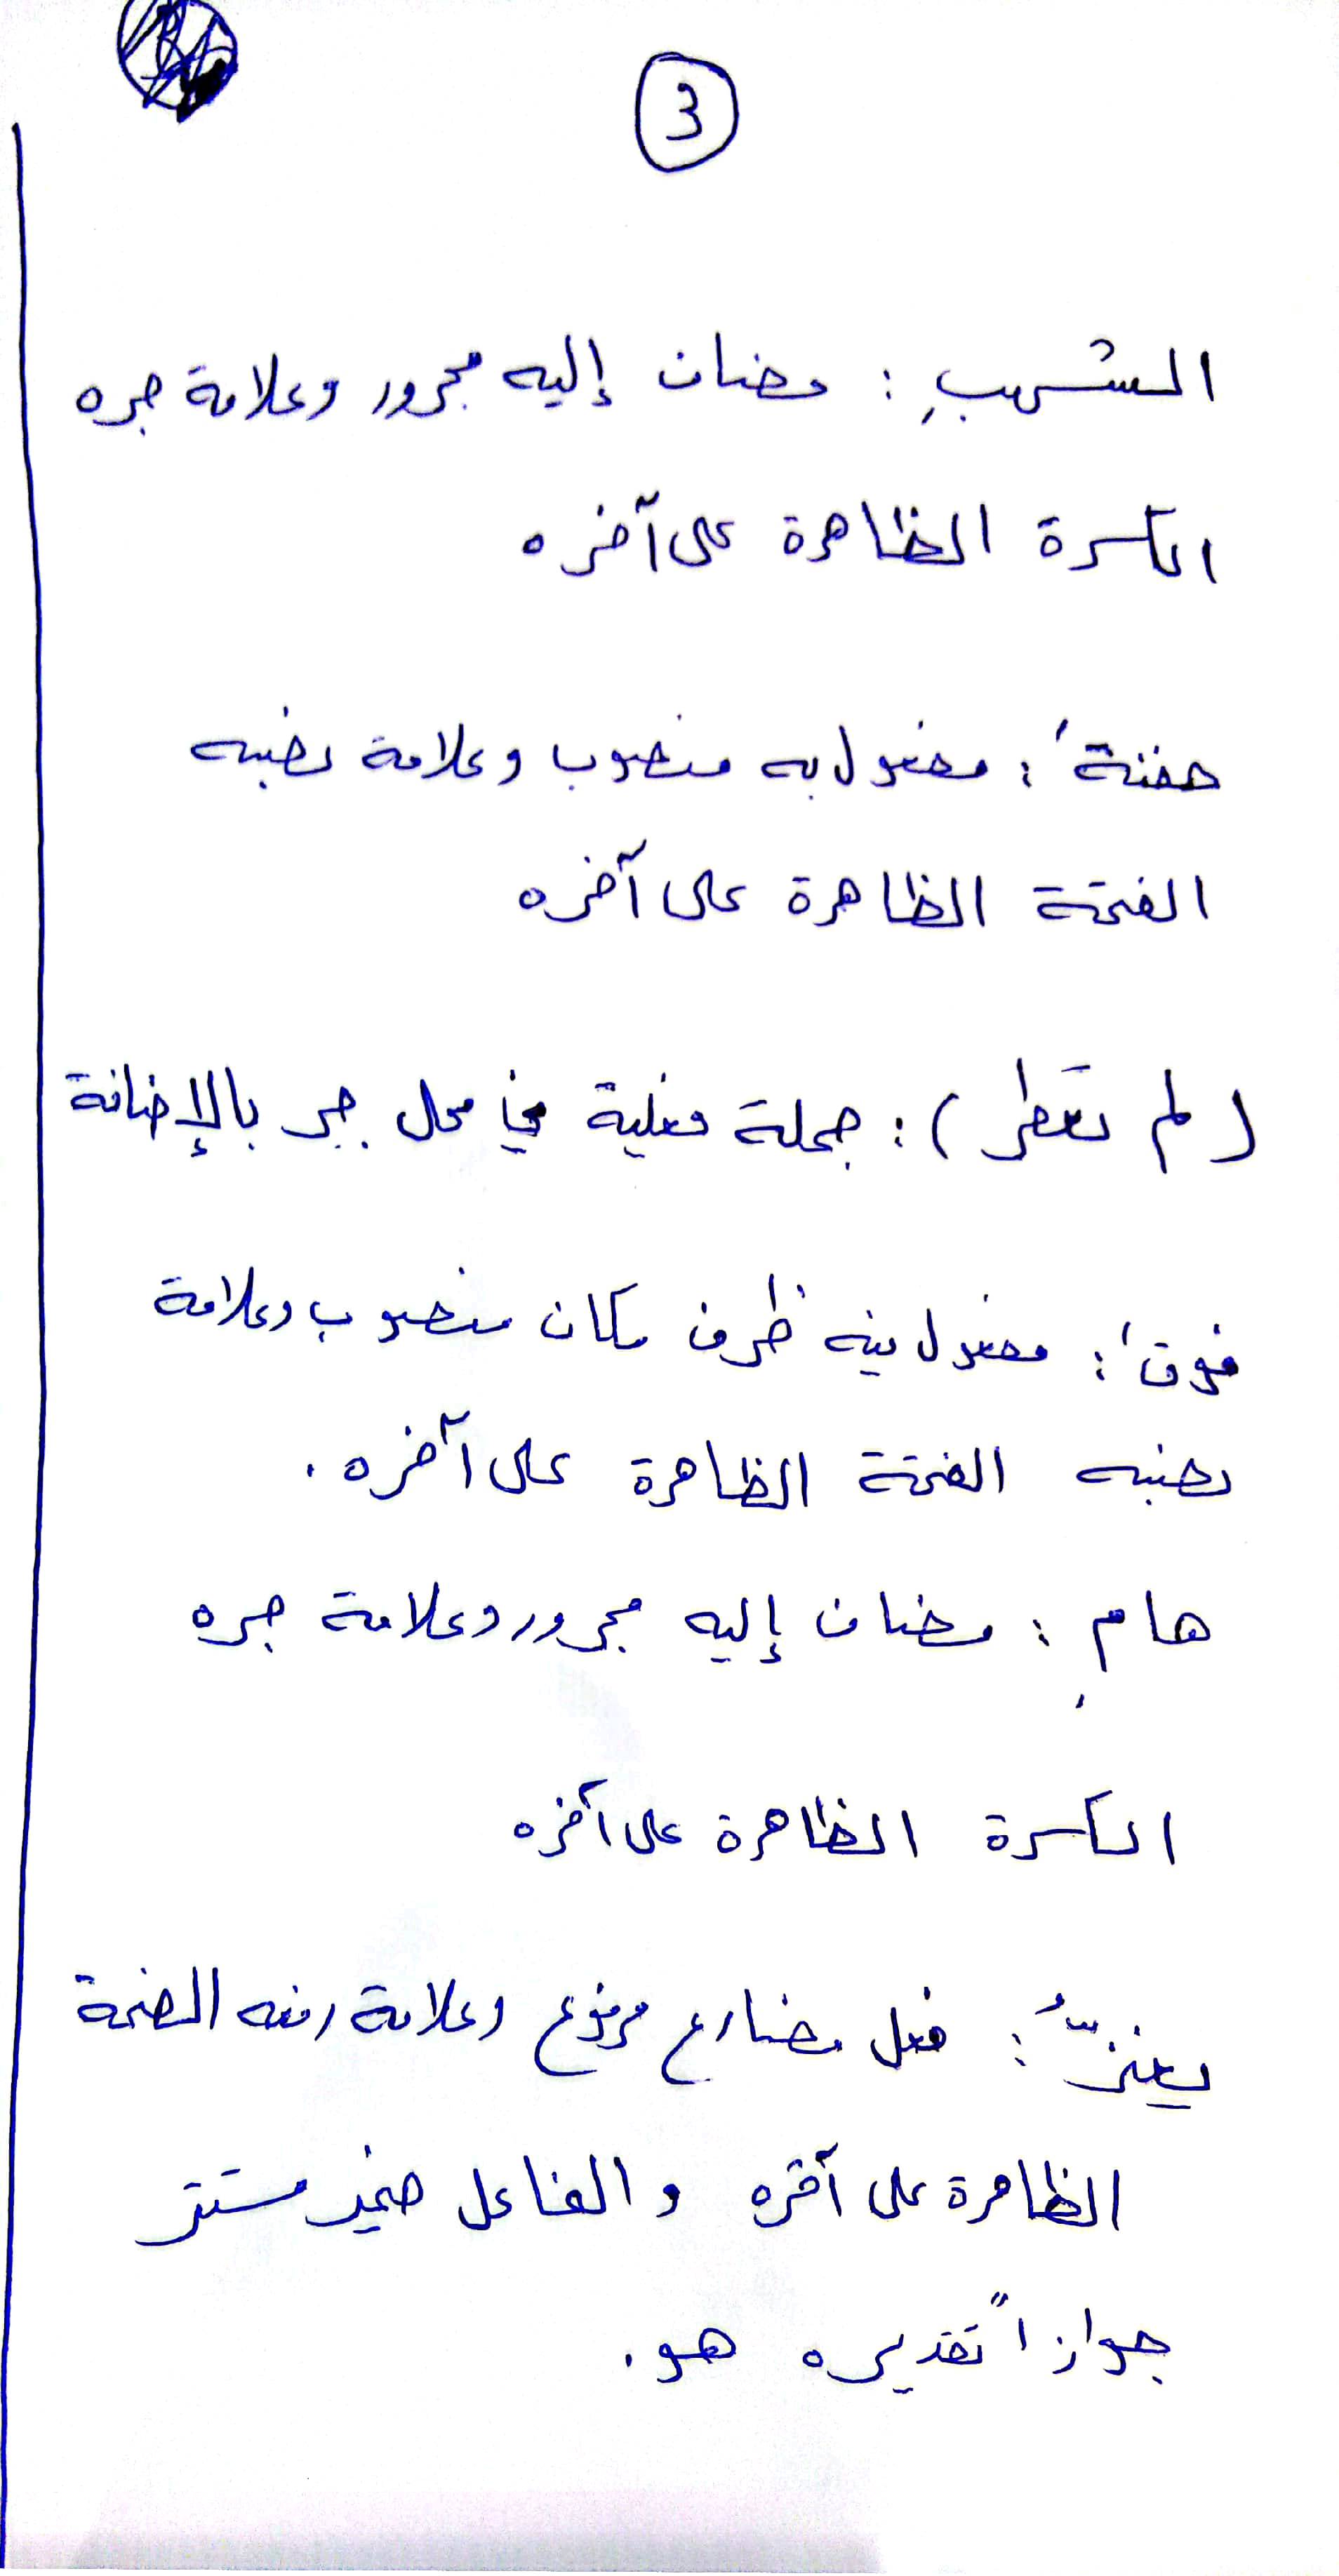 3
الشهبِ : مضاف إليه مجرور وعلامة جره
الكسرة الظاهرة على آخره
حفنةَ : مفعول به منصوب وعلامة نصبه
الفتحة الظاهرة على آخره
( لم تعطَ ) : جملة فعلية في محل جر بالإضافة
فوقَ : مفعول فيه ظرف مكان منصوب وعلامة
نصبه الفتحة الظاهرة على آخره .
هامِ : مضاف إليه مجرور وعلامة جره
الكسرة الظاهرة على آخره
: فعل مضارع مرفوع وعلامة رفعه الضمة
الظاهرة على آخره والفاعل ضمير مستتر
جوازاً تقديره هو .